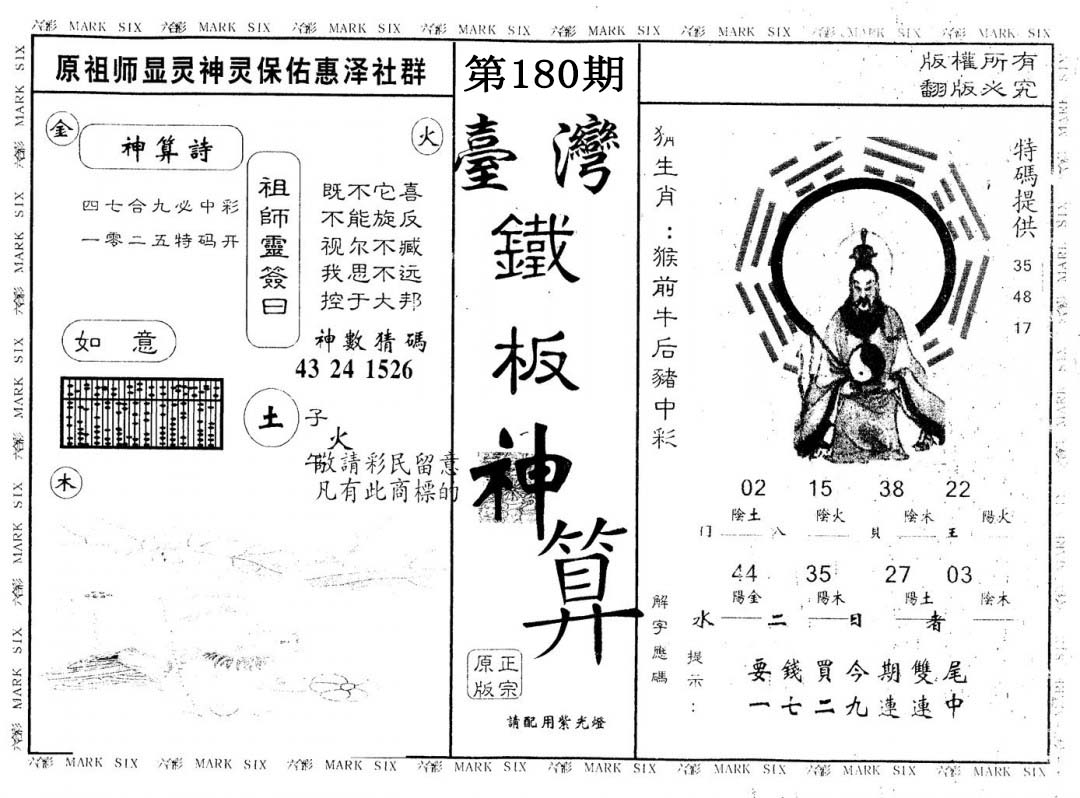 六合彩 MARK SIX 六合彩 MARK SIX 六合彩 MARK SIX 六合彩 MARK SIX 六合彩 MARK SIX 六合彩 MARK SIX 六合彩 MARK SIX 六合彩 MARK SIX
原祖师显灵神灵保佑惠泽社群
金
火
神算詩
四七合九必中彩
一零二五特码开
祖師靈簽曰
既不它喜
不能旋反
视尔不臧
我思不远
控于大邦
神數猜碼
43 24 1526
如意
土
子
火
午
敬請彩民留意
凡有此商標的
木
第180期
臺灣
鐵板神算
正宗
原版
請配用紫光燈
版權所有
翻版必究
猜生肖：猴前牛后豬中彩
特碼提供
35
48
17
02 15 38 22
陰土 陰火 陰木 陽火
门 八 貝 王
44 35 27 03
陽金 陽木 陽土 陰木
水 二 日 者
解字應碼
提示：
要錢買今期雙尾
一七二九連連中
六合彩 MARK SIX 六合彩 MARK SIX 六合彩 MARK SIX 六合彩 MARK SIX 六合彩 MARK SIX 六合彩 MARK SIX 六合彩 MARK SIX 六合彩 MARK SIX